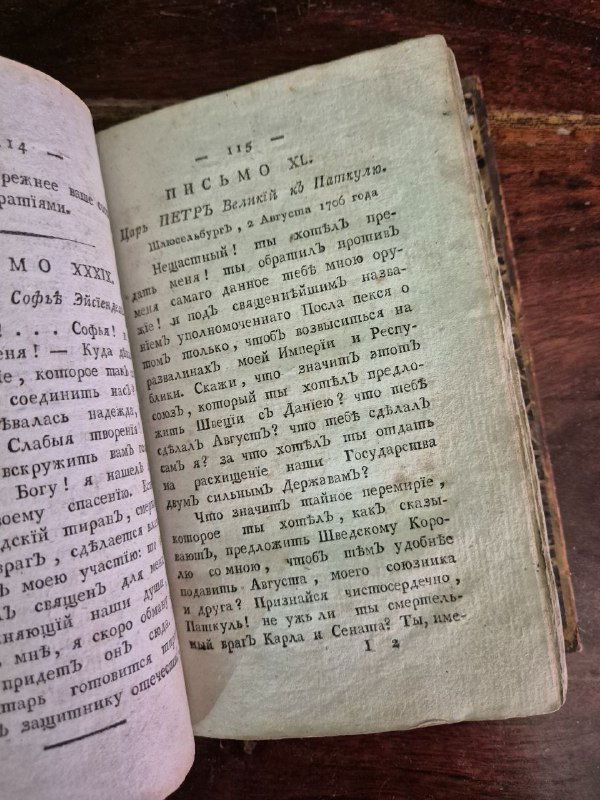 14 —
режнее ваше
ратіями.
МО XXXIX.
Софьѣ
! . . . Софья!
еня! — Куда
іе, которое так
соединить насъ?
ѣвалась надежда,
Слабыя творенія
вскружить вам
Богу! я нашел
воему спасенію.
дскій тиранъ,
врагъ, сдѣлается
ъ моею участію:
лъ священ для
няющій наши души
ъ мнѣ, я скоро
придетъ онъ сюда.
тарь готовится
ъ защитнику отечест
— 115 —
ПИСЬМО XL.
Царь ПЕТРЪ Великій къ Паткулю.
Шлюсельбургъ, 2 Августа 1706 года
Нещастный! ты хотѣлъ пре-
дать меня! ты обратилъ противъ
меня самаго данное тебѣ мною ору-
жіе! и подъ священнѣйшимъ назва-
ніемъ уполномоченнаго Посла пекся о
томъ только, чтобъ возвыситься на
развалинахъ моей Имперіи и Респу-
блики. Скажи, что значитъ этотъ
союзъ, который ты хотѣлъ предло-
жить Швеціи съ Даніею? что тебѣ
сдѣлалъ Августъ? что тебѣ сдѣлалъ
самъ я? за что хотѣлъ ты отдать
на расхищеніе наши Государства
двумъ сильнымъ Державамъ?
Что значитъ тайное перемиріе,
которое ты хотѣлъ, какъ сказы-
ваютъ, предложить Шведскому Коро-
лю со мною, чтобъ тѣмъ удобнѣе
подавить Августа, моего союзника
и друга? Признайся чистосердечно,
Паткуль! не ужь ли ты смертель-
ный врагъ Карла и Сената? Ты, име-
I 2